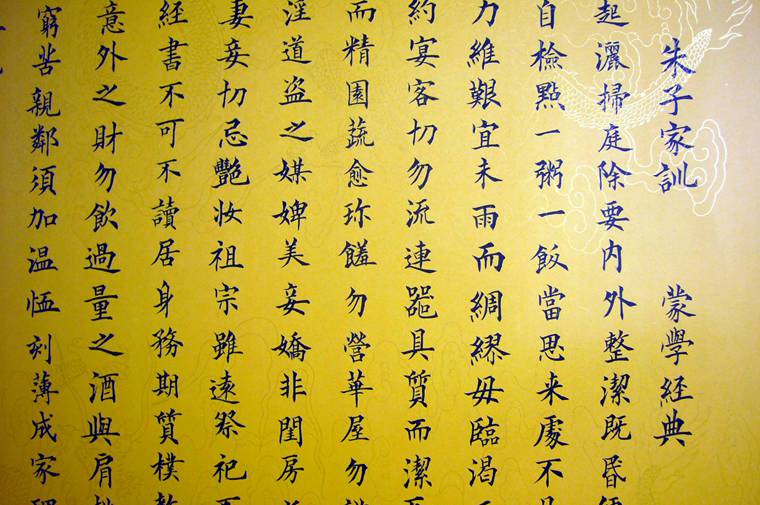 朱子家訓 蒙學經典
起灑掃庭除要内外整潔既昏
自檢點一粥一飯當思来處不
力維艱宜未雨而綢繆毋臨渴
約宴客切勿流連噐具質而潔
而精園蔬愈珍饈勿營華屋勿
淫道盗之媒婢美妾嬌非閨房
妻妾切忌艷妝祖宗雖遠祭祀
經書不可不讀居身務期質樸
意外之財勿飲過量之酒與肩
窮苦親鄰須加温恤刻薄成家